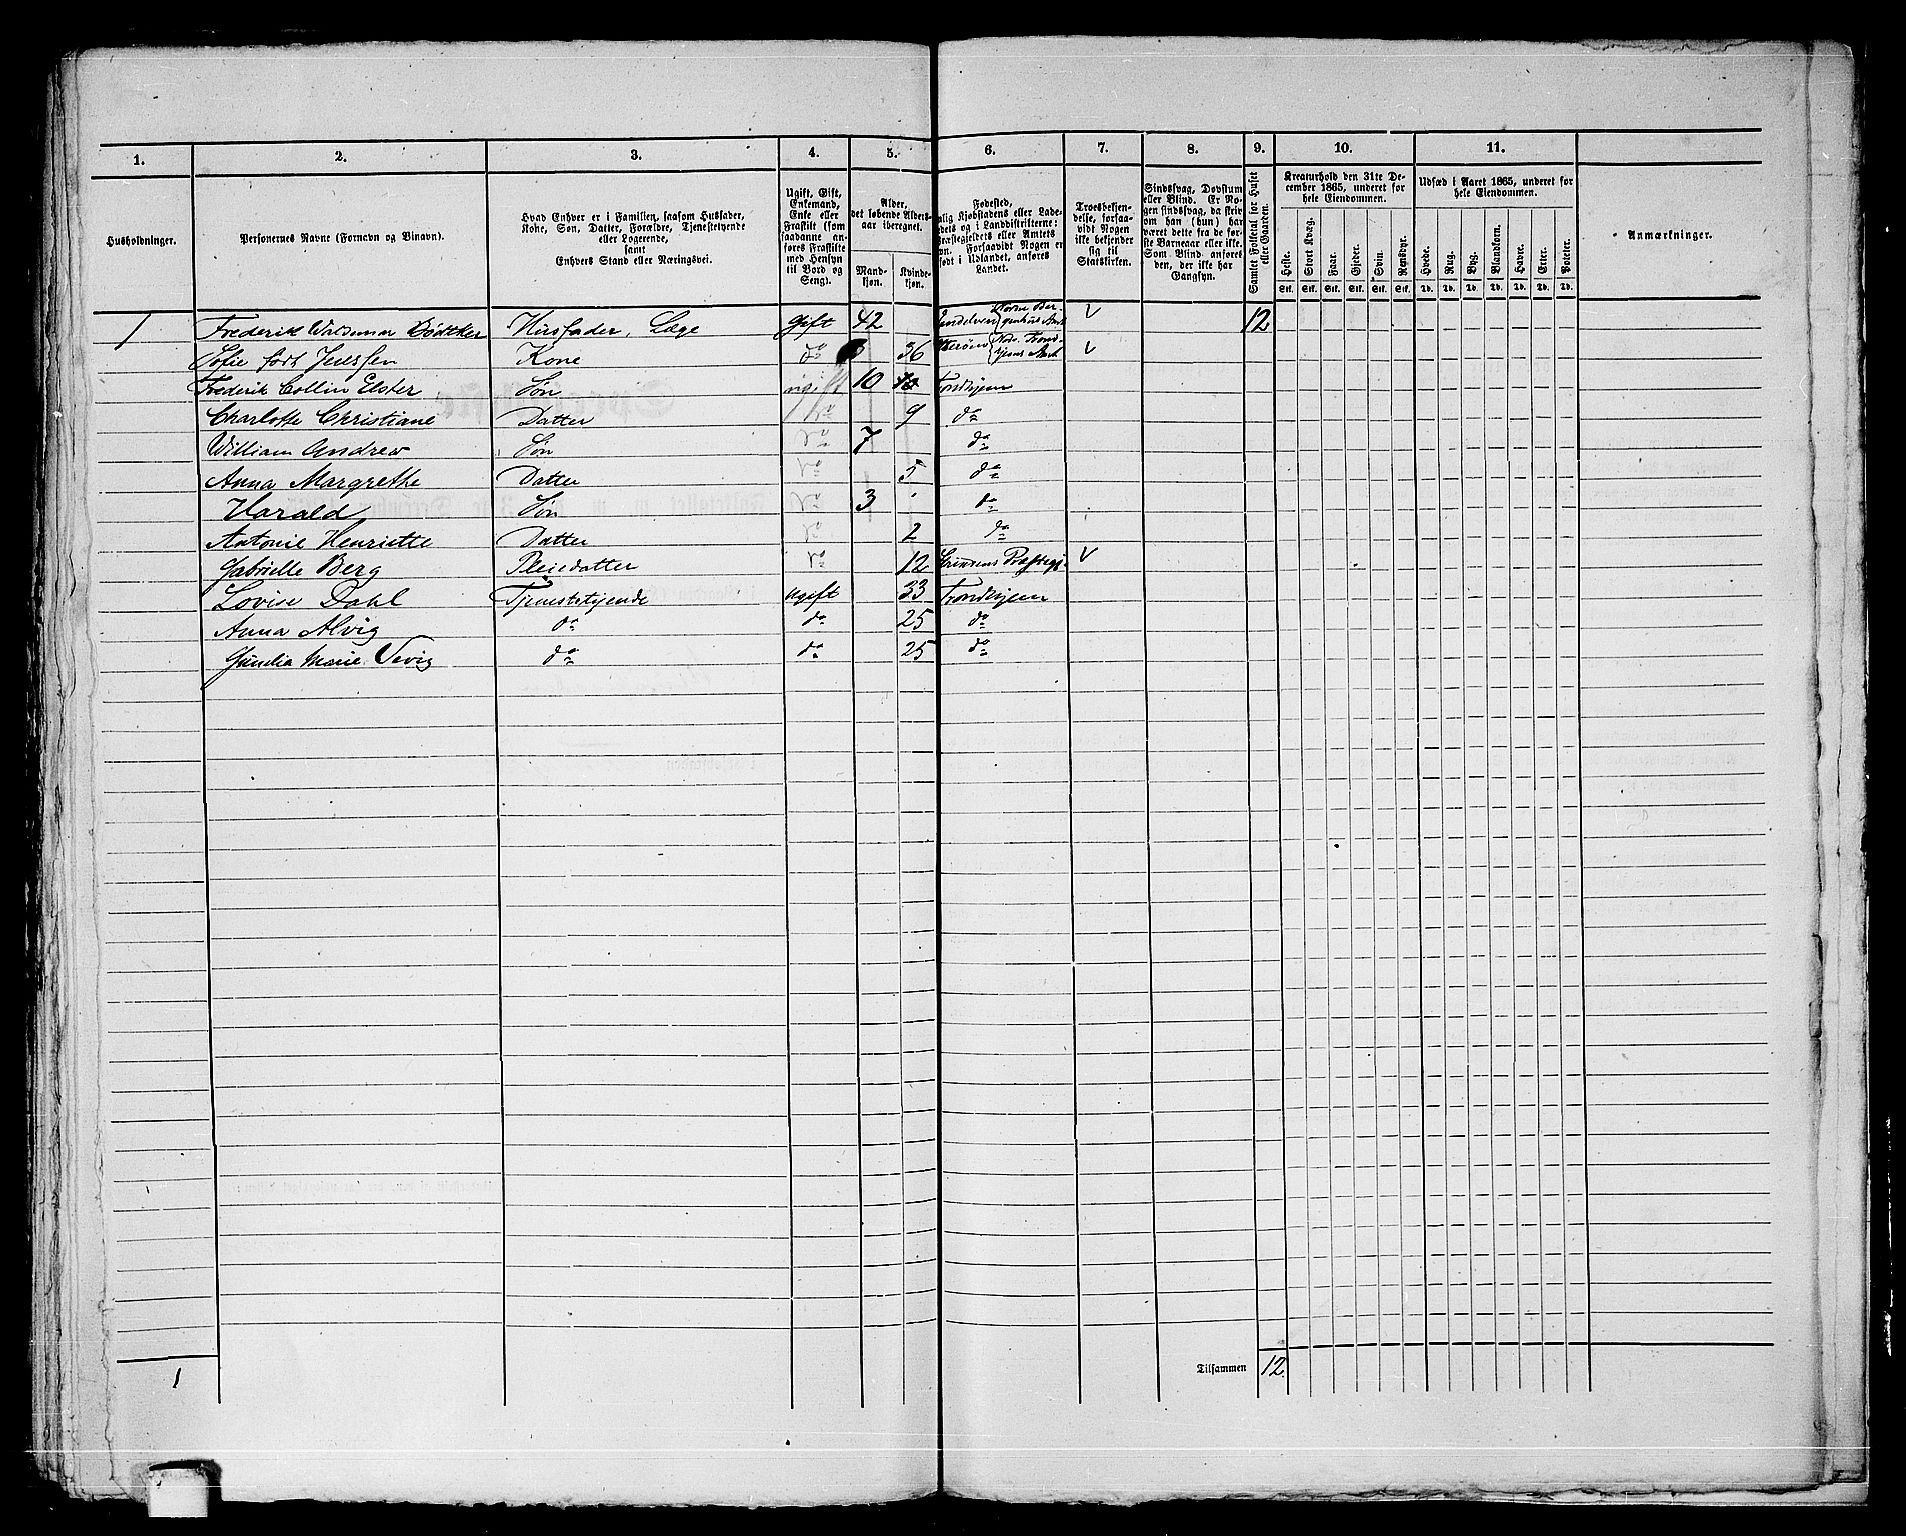 1. 2. 3. 4. 5. 6. 7. 8. 9. 10. 11.
Husholdninger.
Personernes Navne (Fornavn og Binavn).
Hvad Enhver er i Familien, saasom Husfader,
Kone, Søn, Datter, Forældre, Tjenestetyende
eller Logerende,
samt
Enhvers Stand eller Næringsvei.
Ugift, Gift,
Enkemand,
Enke eller
Fraskilt (som
saadanne an-
føres Fraskilte
med Hensyn
til Bord og
Seng).
Alder,
det løbende Alders-
aar iberegnet.
Mand-
kjøn.
Kvinde-
kjøn.
Fødested,
alig Kjøbstadens eller Lade-
dets og i Landdistrikterne:
ræstegjeldets eller Amtets
vn. Forsaavidt Nogen er
født i Udlandet, anføres
Landet.
Troesbekjen-
delse, forsaa-
vidt Nogen
ikke bekjender
sig til
Statskirken.
Sindssvag, Døvstum
eller Blind. Er No-
gen sindssvag, da skriv
om han (hun) har
været dette fra de før-
ste Barneaar eller ikke.
Som Blind anføres
den, der ikke har
Gangsyn.
Samlet Folketal for Huset
eller Gaarden.
Kreaturhold den 31te De-
cember 1865, underet for
hele Eiendommen.
Heste. Stort Kvæg. Faar. Gjeder. Svin. Rensdyr.
Stk. Stk. Stk. Stk. Stk. Stk.
Udsæd i Aaret 1865, underet for
hele Eiendommen.
Hvede. Rug. Byg. Blandkorn. Havre. Erter. Poteter.
Td. Td. Td. Td. Td. Td. Td.
Anmærkninger.
1 Frederik Waldemar Bødtker Husfader, Læge Gift 42 12
Sofie født Jenssen Kone do 36
Frederik Collin Elster Søn ugift 10 Trondhjem
Charlotte Christiane Datter do 9 do
William Andrew Søn do 7 do
Anna Margrethe Datter do 5 do
Harald Søn do 3 do
Antonie Henriette Datter do 2 do
Gabrielle Berg Pleiedatter do 12
Lovise Dahl Tjenestetyende Ugift 33 Trondhjem
Anna Alvig do do 25 do
Marie do do 25 do
1 Tilsammen 12